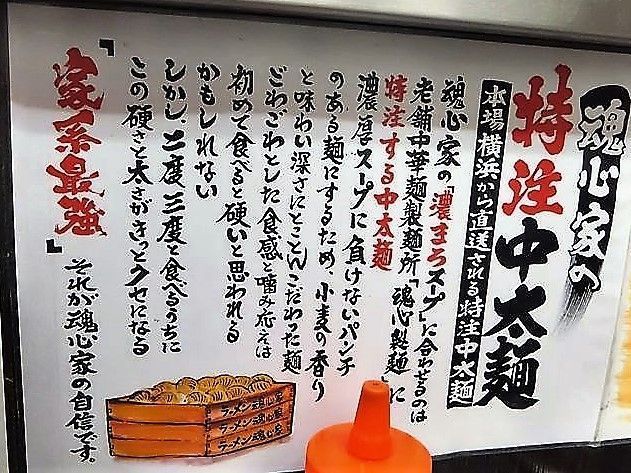 魂心家の
特注中太麺
本場横浜から直送される特注中太麺
魂心家の「濃まろスープ」に合わせるのは
老舗中華麺製麺所「魂心製麺」に
特注する中太麺
濃厚スープに負けないパンチ
のある麺にするため、小麦の香り
と味わい深さにとことんこだわった麺
ごわごわとした食感と噛み応えは
初めて食べると硬いと思われる
かもしれない
しかし、二度三度と食べるうちに
この硬さと太さがきっとクセになる
「家系最強」
それが魂心家の自信です。
ラーメン魂心家
ラーメン魂心家
ラーメン魂心家